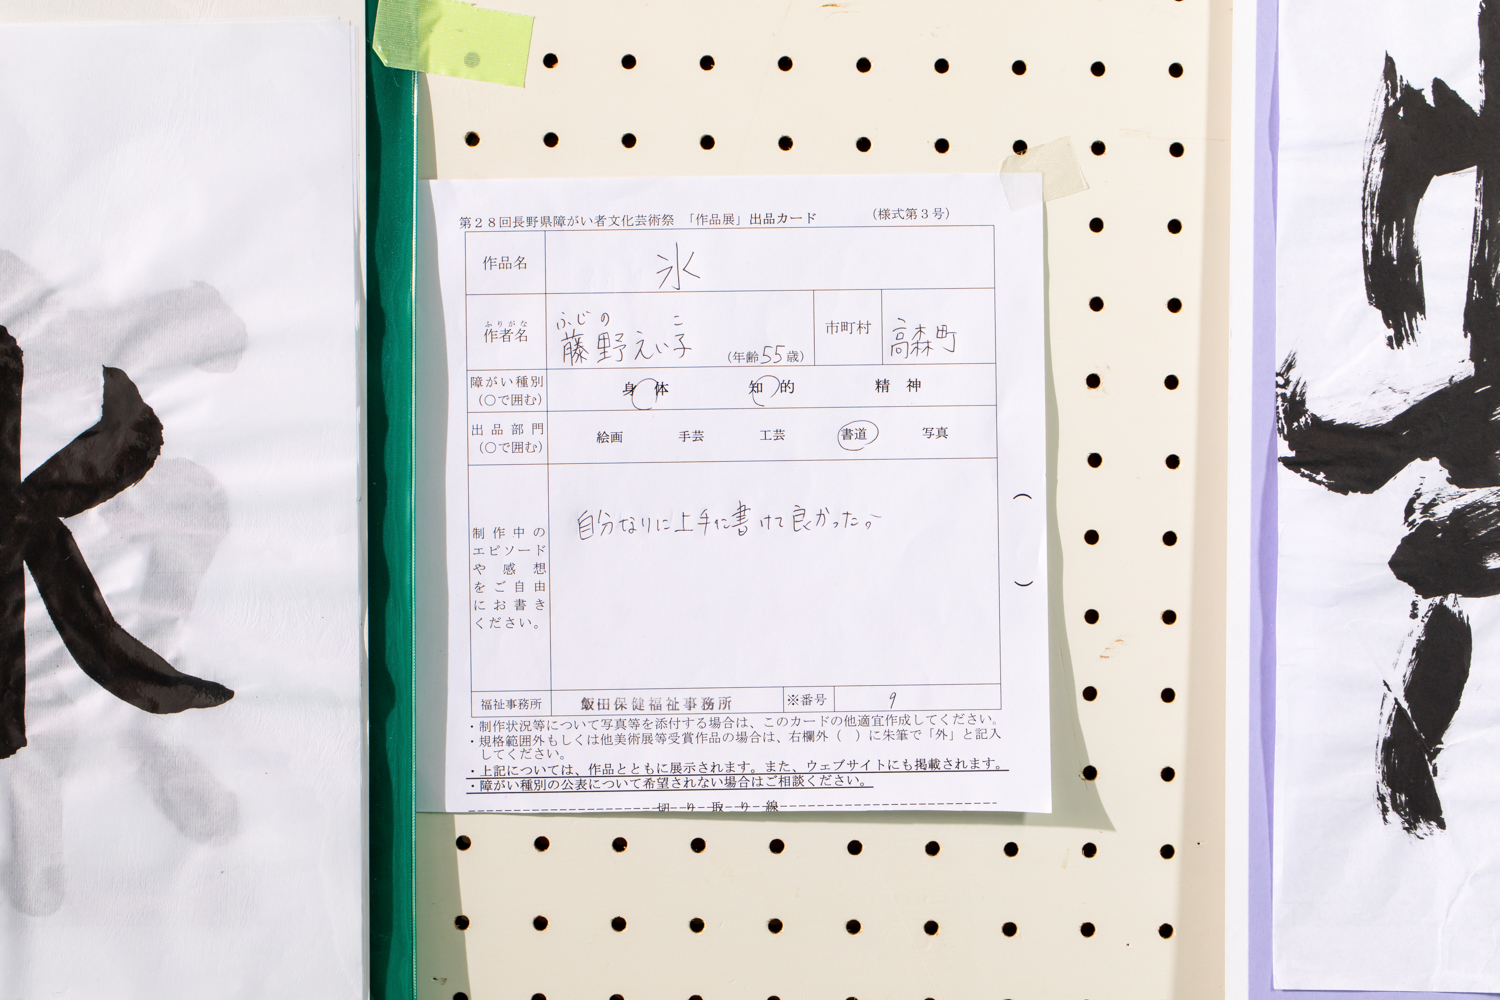 第28回長野県障がい者文化芸術祭 「作品展」出品カード (様式第3号)
作品名
氷
ふりがな
作者名
ふじの こ
藤野えい子
(年齢55歳)
市町村
高森町
障がい種別
(〇で囲む)
身 体 知 的 精 神
出品部門
(〇で囲む)
絵画 手芸 工芸 書道 写真
制作中の
エピソード
や感想
をご自由
にお書き
ください。
自分なりに上手に書けて良かった。
( )
福祉事務所
飯田保健福祉事務所
※番号
9
・制作状況等について写真等を添付する場合は、このカードの他適宜作成してください。
・規格範囲外もしくは他美術展等受賞作品の場合は、右欄外( )に朱筆で「外」と記入
してください。
・上記については、作品とともに展示されます。また、ウェブサイトにも掲載されます。
・障がい種別の公表について希望されない場合はご相談ください。
切り取り線